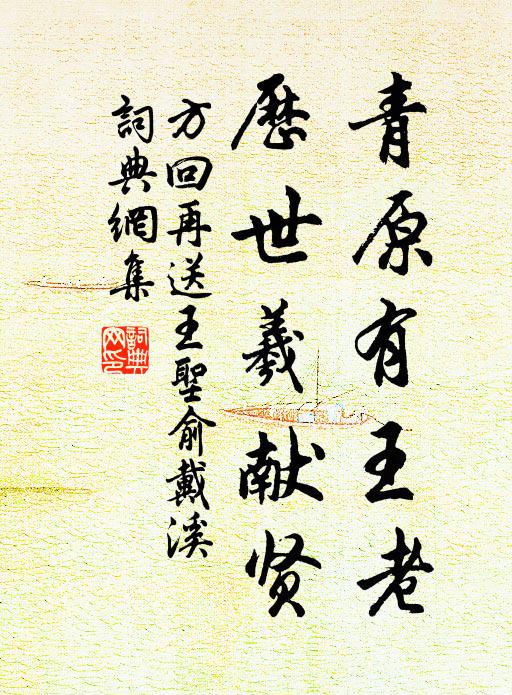 青原有王老
歷世羲献贤
方回再送王聖俞戴溪
詞典網集
詞典网印